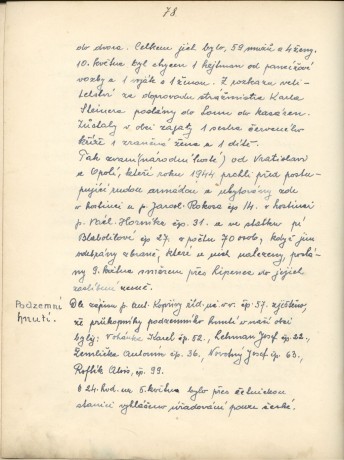 78
do dvora. Celkem jich bylo, 59 mužů a 4 ženy.
10. května byl chycen 1 hejtman od pancéřové
vozby a 1 voják s 1 ženou. Z rozkazu veli-
telství za doprovodu strážmistra Karla
Steinera poslány do Loun do kasáren.
Zůstaly v obci zajaty 1 sestra červeného
kříže 1 zraněná žena a 1 dítě.
Tak zvaní (národní hosté) od Vratislavi
a Opolí, kteří roku 1944 prchli před postu-
pující rudou armádou a ubytováni zde
v hostinci u p. Jarosl. Rokose čp 14. v hostinci
p. Václ. Horníka čp. 31. a ve statku pí
čp 27. v počtu 70 osob, když jim
odebrány zbraně, které u nich nalezeny, poslá-
ny 9. května směrem přes Ripenec do jejich
zaslíbené země.
Podzemní
hnutí.
Dle zápisu p. ant. Kopřivy říd. uč. v. v. čp. 57. zjištěno,
že průkopníky podzemního hnutí v naší obci
byli: Karel čp 52., Lehman Josef čp. 22.,
Žemlička Antonín čp. 36, Novotný Josef čp. 63,
Alois, čp. 99.
O 24. hod. na 5. května bylo přes četnickou
stanici vyhlášeno úřadování pouze české.